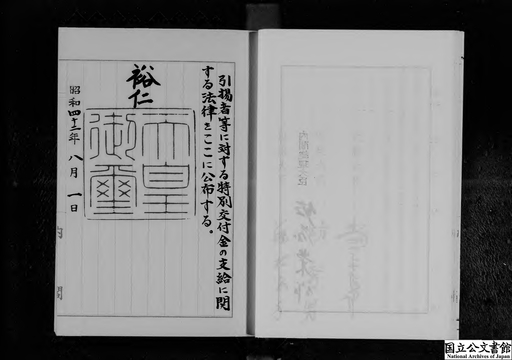 引揚者等に対する特別交付金の支給に関
する法律をここに公布する。
裕仁
天皇
御璽
昭和四十二年 八月 一日
国立公文書館
National Archives of Japan